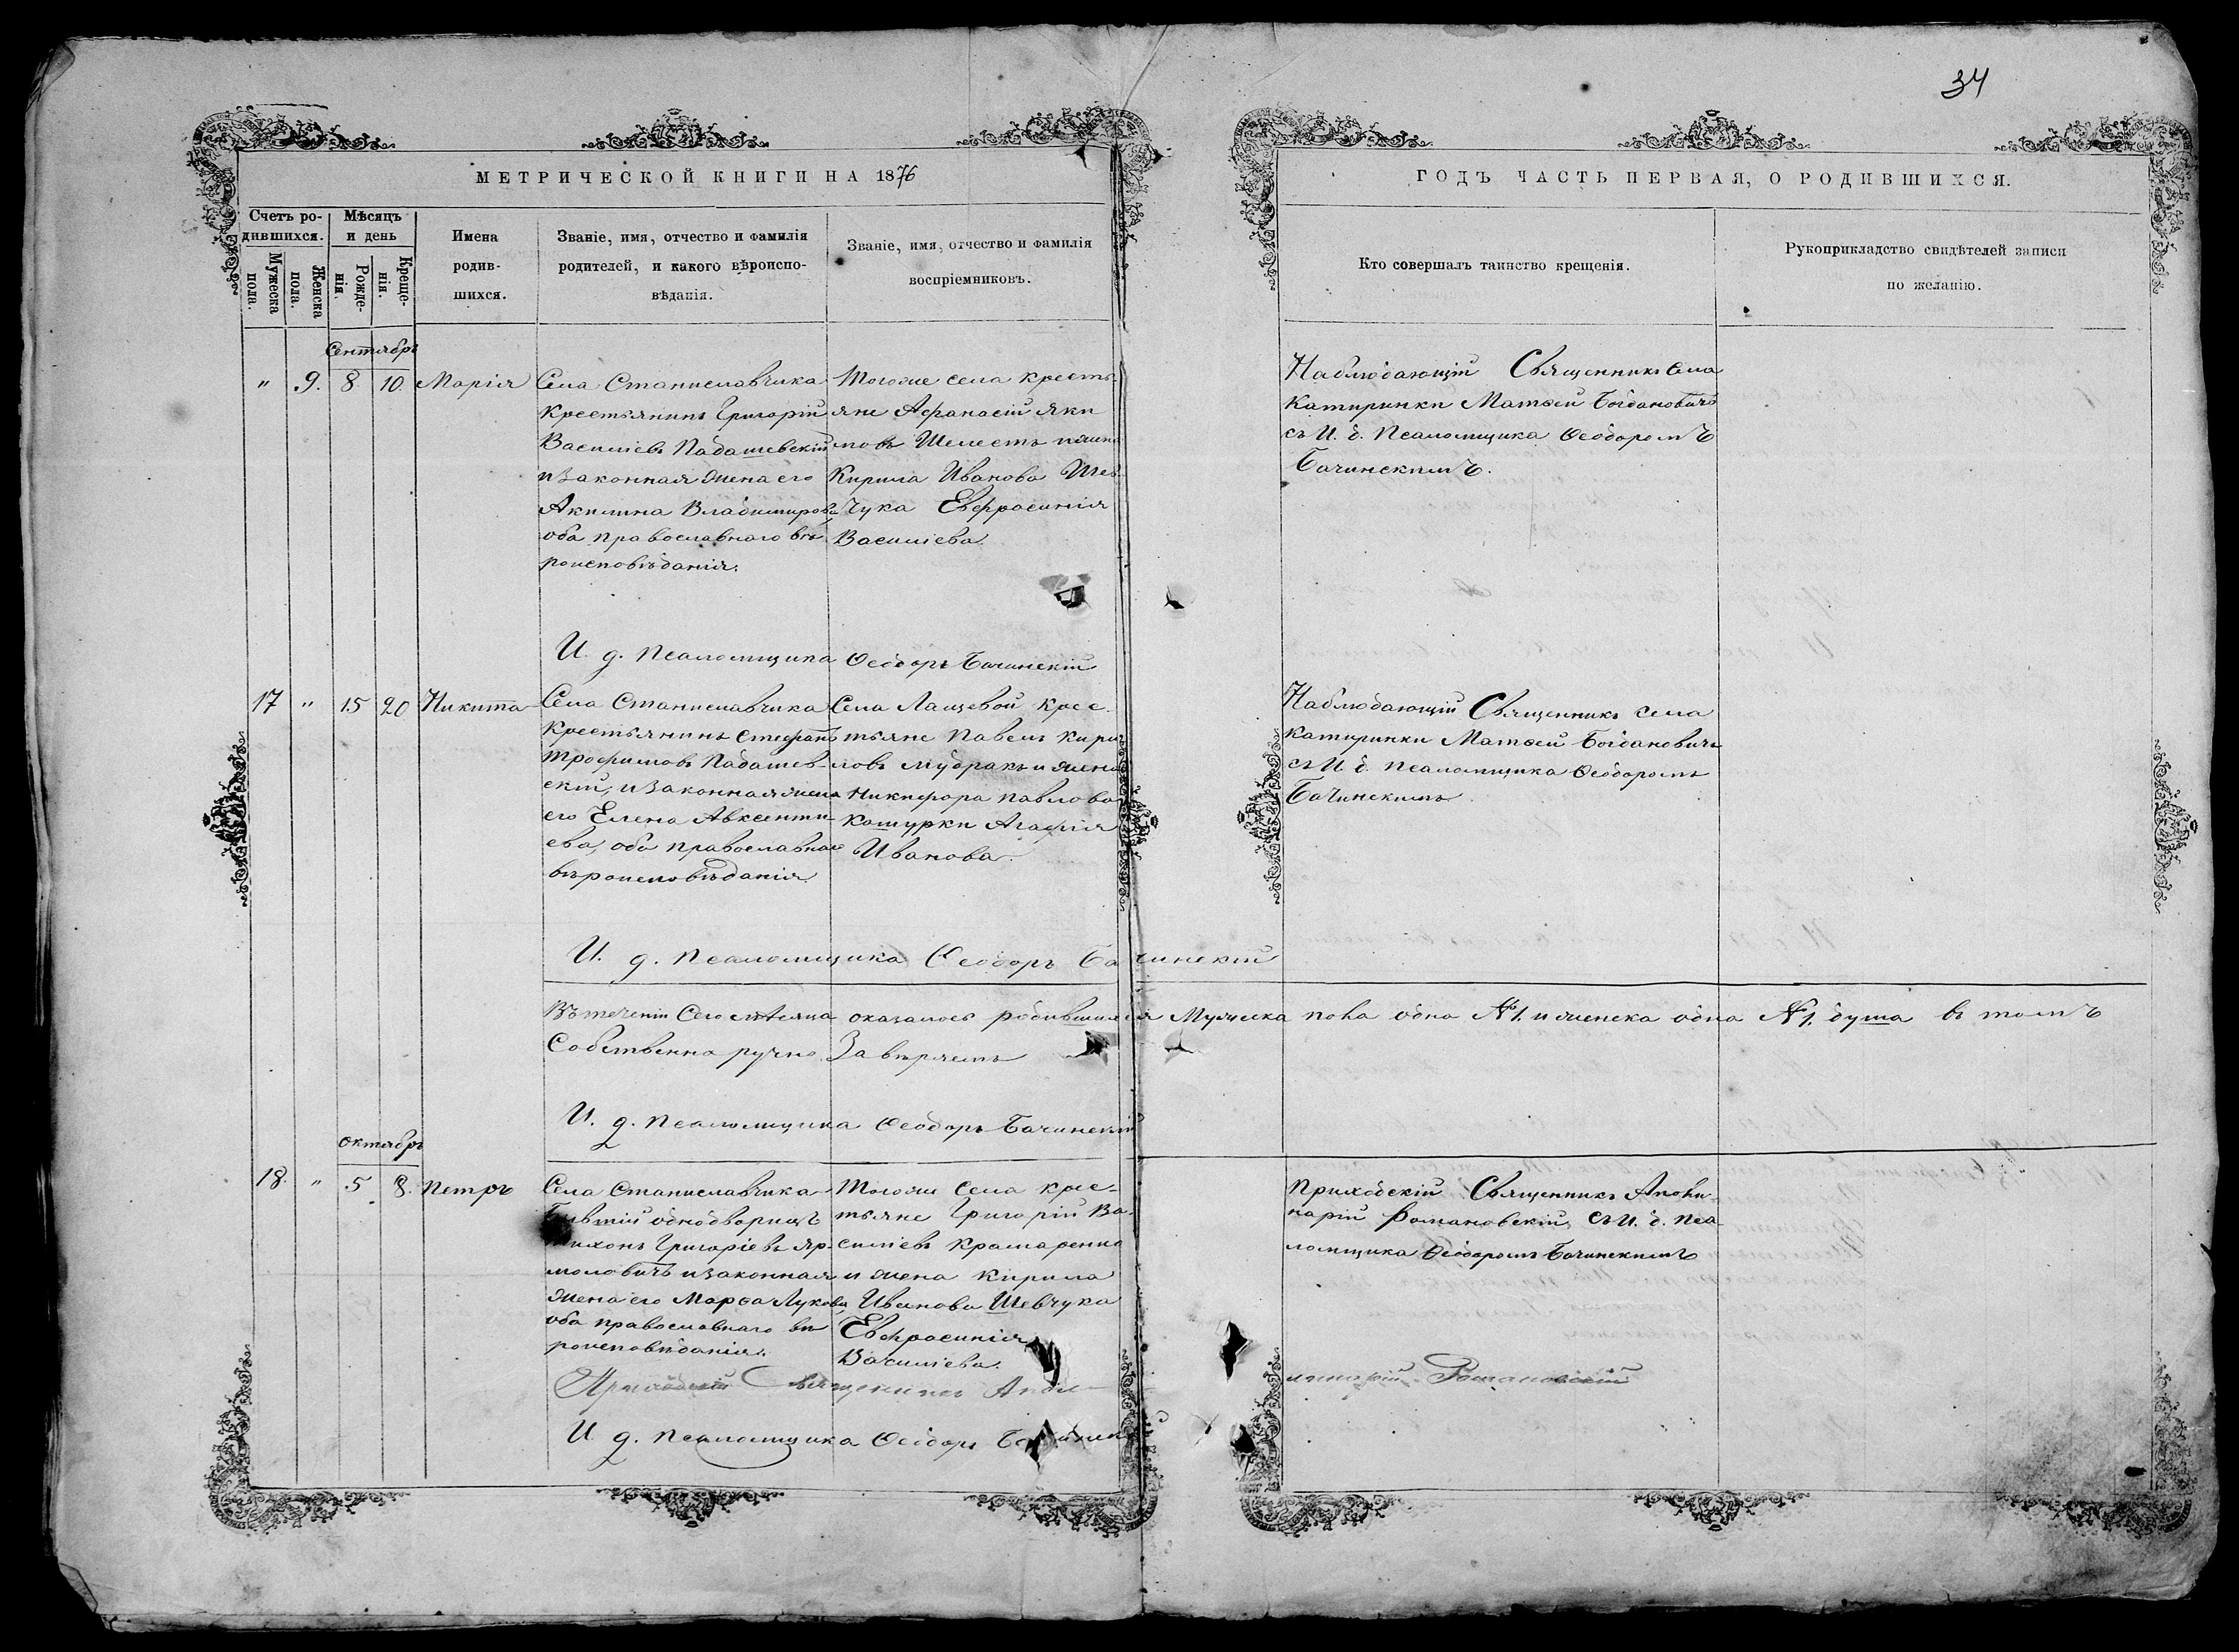 34
МЕТРИЧЕСКОЙ КНИГИ НА 1876
ГОДЪ ЧАСТЬ ПЕРВАЯ, О РОДИВШИХСЯ.
Счетъ ро-
дившихся.
Мужеска пола.
Женска пола.
Мѣсяцъ
и день
Рожде-
нія.
Креще-
нія.
Имена
родив-
шихся.
Званіе, имя, отчество и фамилія
родителей, и какого вѣроиспо-
вѣданія.
Званіе, имя, отчество и фамилія
воспріемниковъ.
Кто совершалъ таинство крещенія.
Рукоприкладство свидѣтелей записи
по желанію.
Сентябрь
" 9. 8. 10. Марія
Села Станиславчика
Крестьянинъ Григорій
Василіевъ Падашевскій
и законная жена его
Акилина Владимирова
оба православнаго вѣ-
роисповѣданія.
Тогоже села кресть-
яне Афанасій Яки
мовъ Шелестъ и жена
Кирила Иванова Шев-
чука Евфросинія
Василіева.
Наблюдающій Священникъ села
Катиринки Матѳей Богдановичъ
съ И. д. Псаломщика Ѳеодоромъ
Бачинскимъ.
И. д. Псаломщика Ѳеодоръ Бачинскій
17 " 15 20 Никита
Села Станиславчика
Крестьянинъ Стефанъ
Трофимовъ Падашев-
скій, и законная жена
его Елена Авксенти-
ева, оба православнаго
вѣроисповѣданія.
Села Лащевой Крес-
тьяне Павелъ Кири
ловъ Мудракъ и жена
Никифора Павлова
Кошурки Агафія
Иванова.
Наблюдающій Священникъ села
Катиринки Матѳей Богдановичъ
съ И. д. Псаломщика Ѳеодоромъ
Бачинскимъ
И. д. Псаломщика Ѳеодоръ Бачинскій
Въ теченіи Сего мѣсяца оказалось родившихся Мужеска пола одна №1. и женска одна №1. душа въ томъ
Собственно ручно Завѣряетъ
И. д. Псаломщика Ѳеодоръ Бачинскій
Октябрь
18. " 5 8. Петръ
Села Станиславчика
Бывшій однодворецъ
Тихонъ Григоріевъ Яр-
моловичъ и законная
жена его Марѳа Лукова
оба православнаго вѣ
роисповѣданія.
Тогоже Села Крес-
тьяне Григорій Ва-
силіевъ Крамаренко
и жена Кирила
Иванова Шевчука
Евфросинія
Василіева.
Приходскій Священникъ Аполи
нарій Романовскій, съ И. д. Пса-
ломщика Ѳеодоромъ Бачинскимъ
Приходскій Священникъ Апол-
линарій Романовскій
И. д. Псаломщика Ѳеодоръ